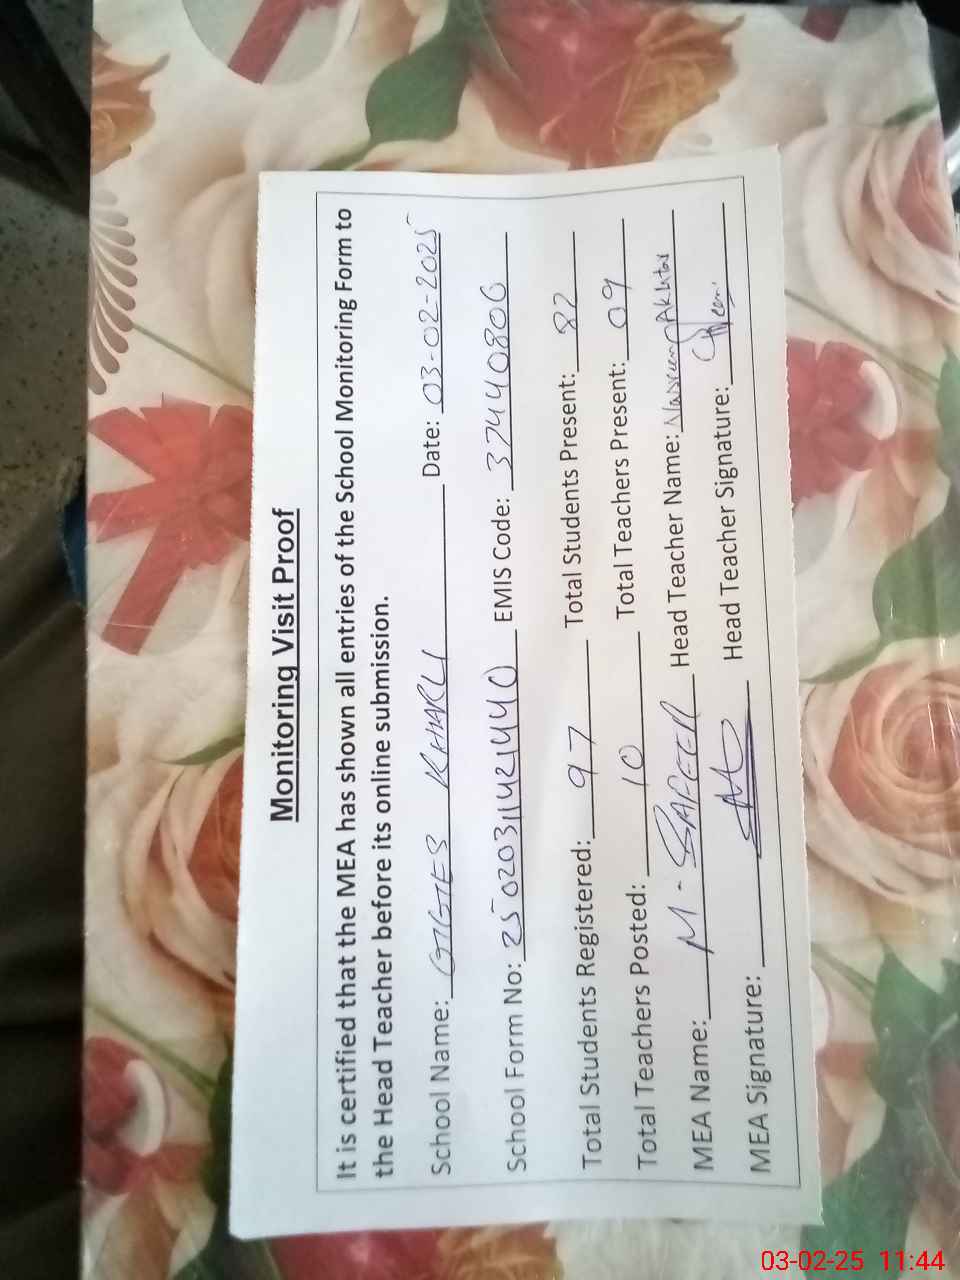 Monitoring Visit Proof
It is certified that the MEA has shown all entries of the School Monitoring Form to
the Head Teacher before its online submission.
School Name: GGES KHARLI Date: 03-02-2025
School Form No: 250203114214440 EMIS Code: 37440806
Total Students Registered: 97 Total Students Present: 82
Total Teachers Posted: 10 Total Teachers Present: 09
MEA Name: M. SAFEER Head Teacher Name: Nasreen Akhtar
MEA Signature: Head Teacher Signature:
03-02-25 11:44